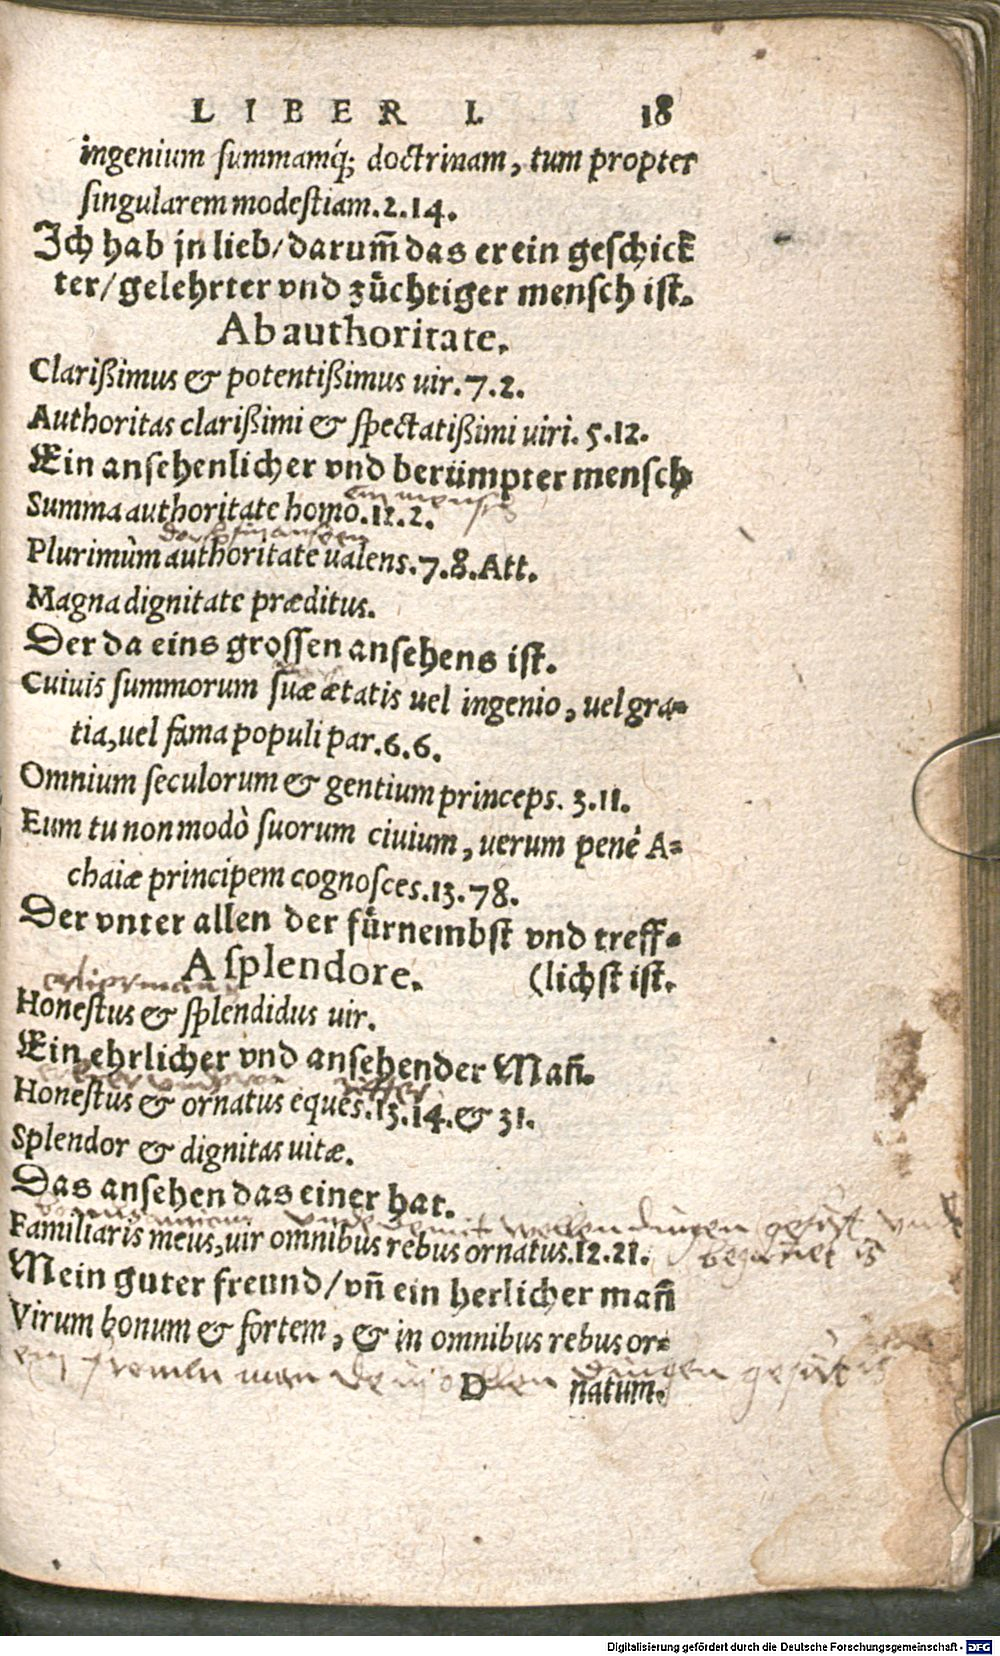 LIBER I. 18
ingenium summamq́; doctrinam, tum propter
singularem modestiam. 2. 14.
Ich hab jn lieb/ darum̃ das er ein geschick-
ter/ gelehrter vnd zůchtiger mensch ist.
Ab authoritate.
Clarißimus & potentißimus uir. 7. 2.
Authoritas clarißimi & spectatißimi uiri. 5. 12.
Ein ansehenlicher vnd berümpter mensch
Summa authoritate homo. 12. 2.
Plurimùm authoritate ualens. 7. 8. Att.
Magna dignitate præditus.
Der da eins grossen ansehens ist.
Cuiuis summorum suæ ætatis uel ingenio, uel gra-
tia, uel fama populi par. 6. 6.
Omnium seculorum & gentium princeps. 3. 11.
Eum tu non modò suorum ciuium, uerum penè A-
chaiæ principem cognosces. 13. 78.
Der vnter allen der fürnembst vnd treff-
A splendore. (lichst ist.
Honestus & splendidus uir.
Ein ehrlicher vnd ansehender Mañ.
ritter
Honestus & ornatus eques. 13. 14. & 31.
Splendor & dignitas uitæ.
Das ansehen das einer hat.
Familiaris meus, uir omnibus rebus ornatus. 12. 21.
Mein guter freund/ vñ ein herlicher mañ
Virum bonum & fortem, & in omnibus rebus or-
man dingen
D natum.
Digitalisierung gefördert durch die Deutsche Forschungsgemeinschaft - DFG